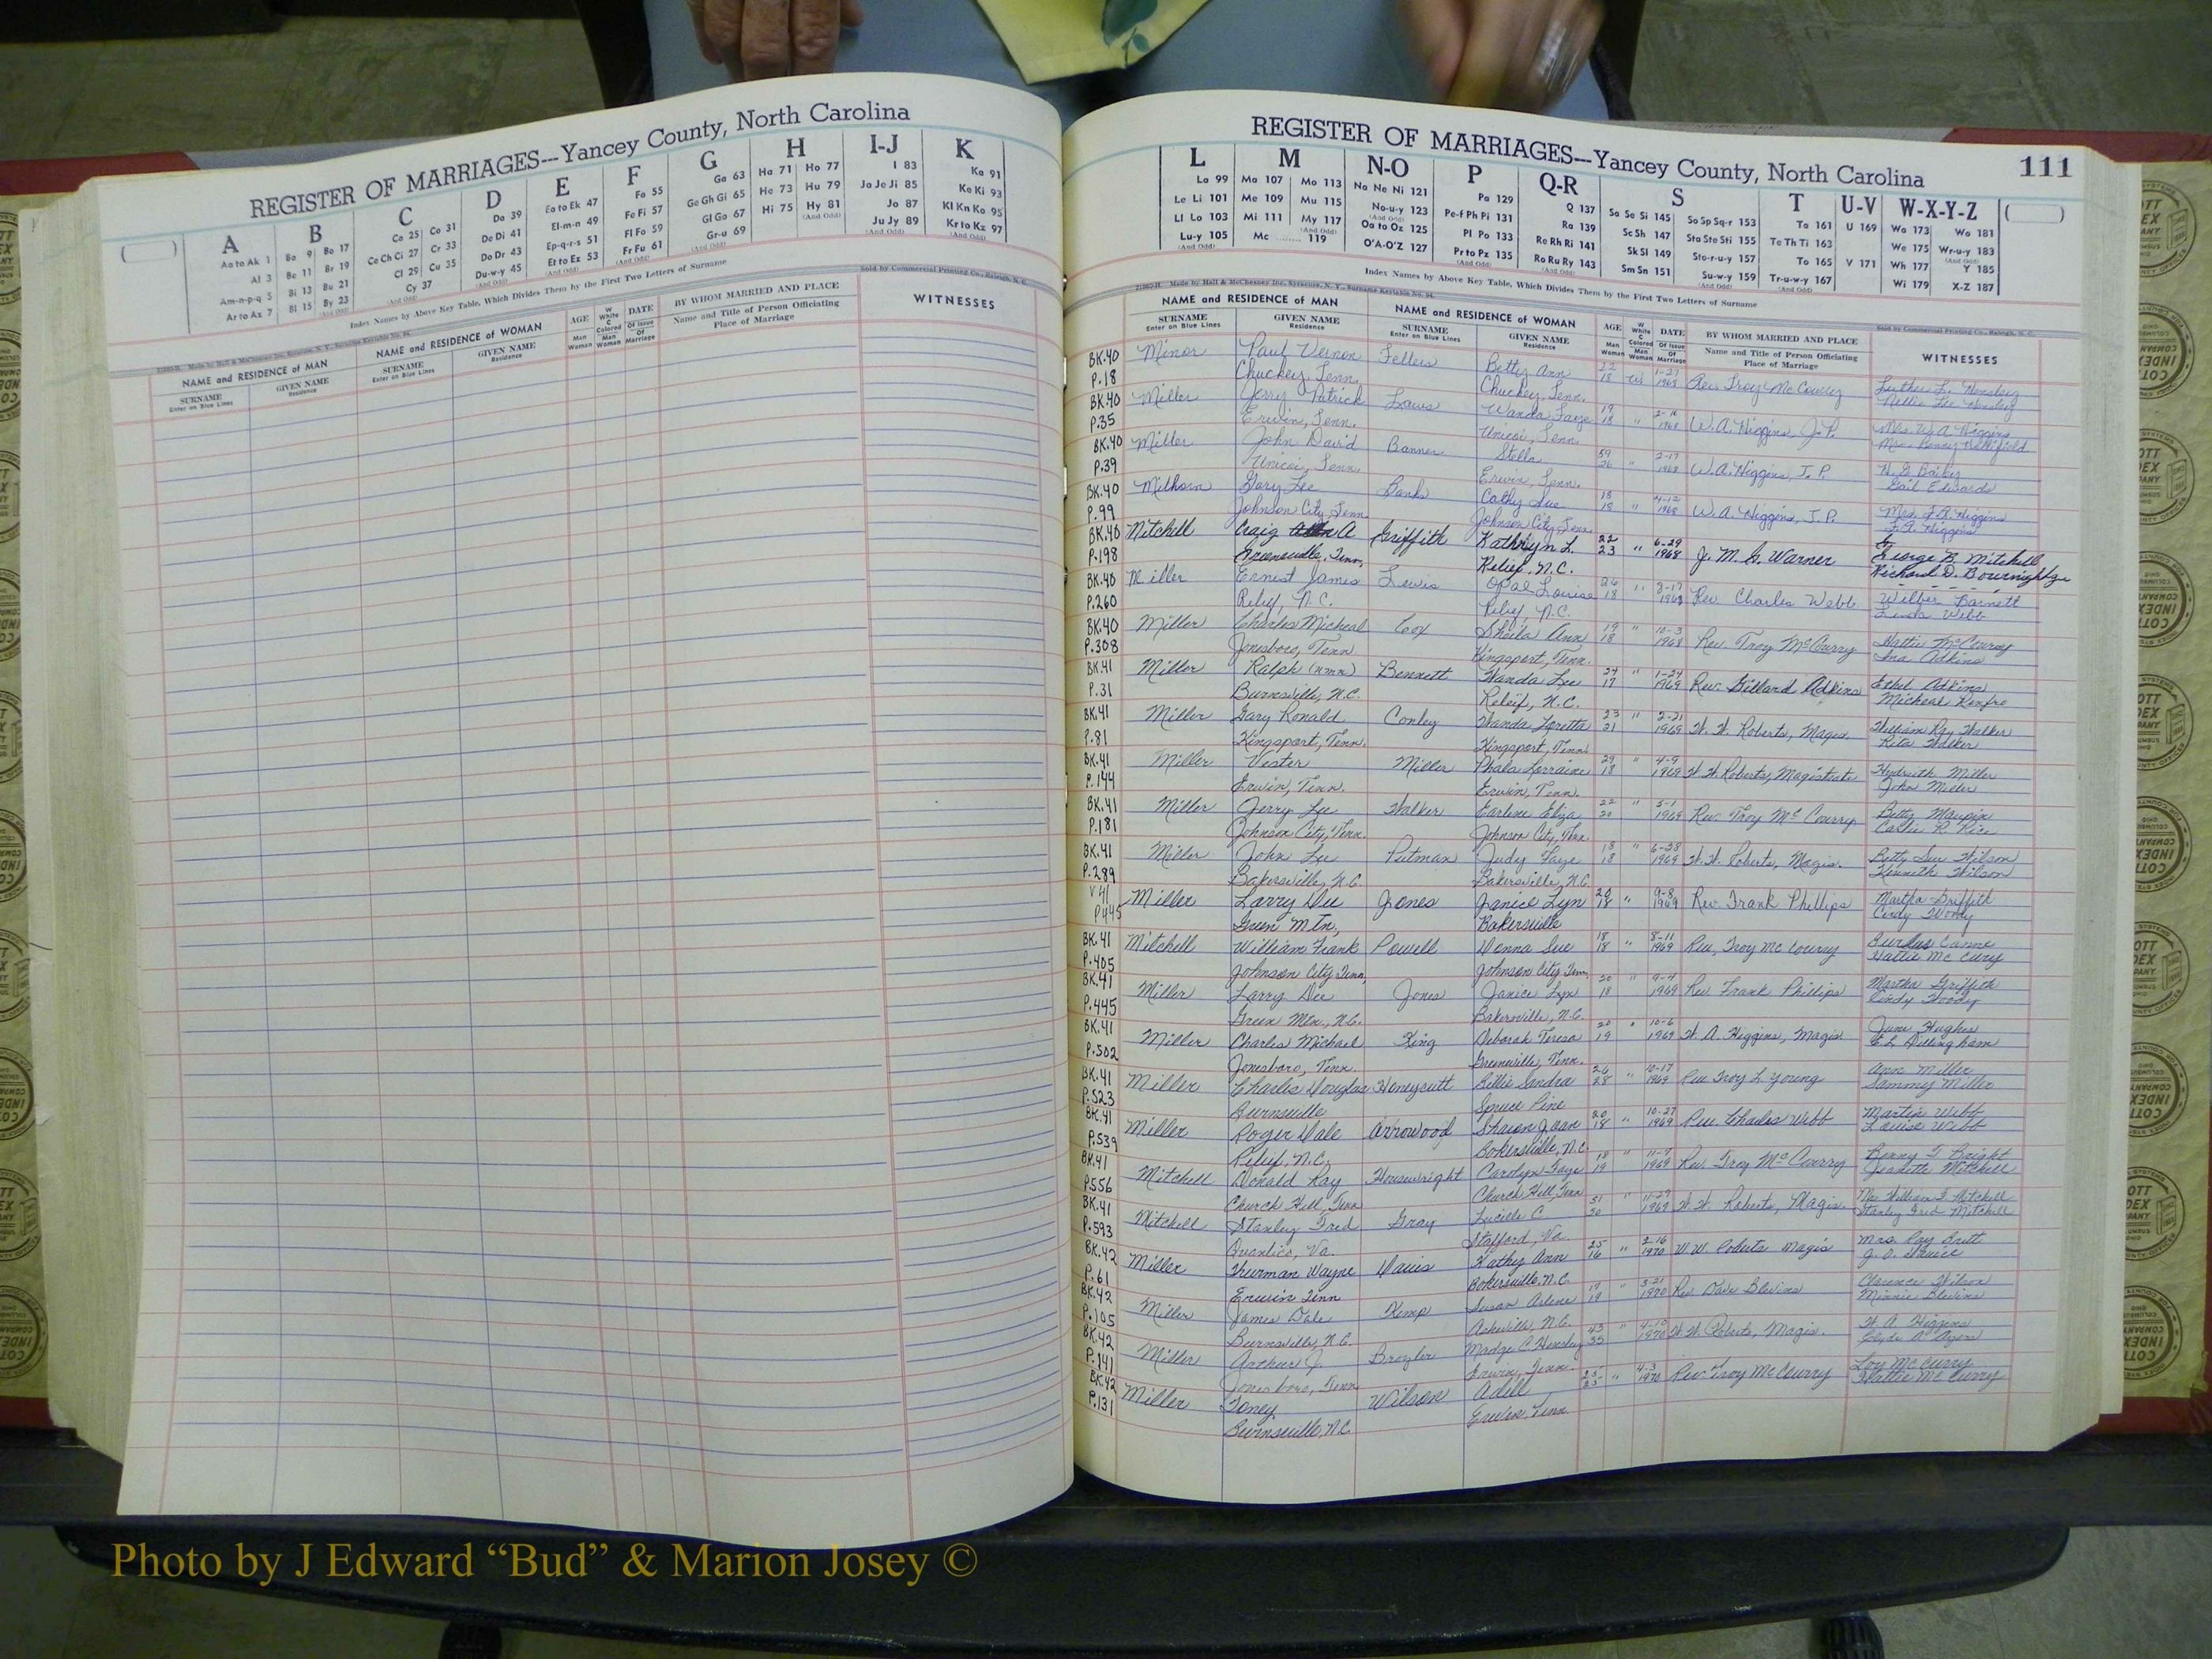 REGISTER OF MARRIAGES---Yancey County, North Carolina
A B C D E F G H I-J K
Aa to Ak 1
Al 3
Am-n-p-q 5
Ar to Az 7
Ba 9 Bo 17
Be 11 Br 19
Bi 13 Bu 21
Bl 15 By 23
Ca 25 Co 31
Ce Ch Ci 27 Cr 33
Cl 29 Cu 35
Cy 37
Da 39
De Di 41
Do Dr 43
Du-w-y 45
Ea to Ek 47
El-m-n 49
Ep-q-r-s 51
Et to Ez 53
Fa 55
Fe Fi 57
Fl Fo 59
Fr Fu 61
Ga 63
Ge Gh Gi 65
Gl Go 67
Gr-u 69
Ha 71 Ho 77
He 73 Hu 79
Hi 75 Hy 81
I 83
Ja Je Ji 85
Jo 87
Ju Jy 89
Ka 91
Ke Ki 93
Kl Kn Ko 95
Kr to Kz 97
Index Names by Above Key Table, Which Divides Them by the First Two Letters of Surname
Sold by Commercial Printing Co., Raleigh, N. C.
NAME and RESIDENCE of MAN
SURNAME
Enter on Blue Lines
GIVEN NAME
Residence
NAME and RESIDENCE of WOMAN
SURNAME
Enter on Blue Lines
GIVEN NAME
Residence
AGE
Man
Woman
W White
C Colored
Man
Woman
DATE
Of Issue
Of Marriage
BY WHOM MARRIED AND PLACE
Name and Title of Person Officiating
Place of Marriage
WITNESSES
REGISTER OF MARRIAGES---Yancey County, North Carolina 111
L M N-O P Q-R S T U-V W-X-Y-Z
La 99
Le Li 101
Ll Lo 103
Lu-y 105
Ma 107 Mo 113
Me 109 Mu 115
Mi 111 My 117
Mc 119
Na Ne Ni 121
No-u-y 123
Oa to Oz 125
O'A-O'Z 127
Pa 129
Pe-f Ph Pi 131
Pl Po 133
Pr to Pz 135
Q 137
Ra 139
Re Rh Ri 141
Ro Ru Ry 143
Sa Se Si 145 So Sp Sq-r 153
Sc Sh 147 Sta Ste Sti 155
Sk Sl 149 Sto-r-u-y 157
Sm Sn 151 Su-w-y 159
Ta 161
Te Th Ti 163
To 165
Tr-u-w-y 167
U 169
V 171
Wa 173 Wo 181
We 175 Wr-u-y 183
Wh 177 Y 185
Wi 179 X-Z 187
Index Names by Above Key Table, Which Divides Them by the First Two Letters of Surname
21985-H Made by Hall & McChesney Inc., Syracuse, N. Y., Surname Keytable No. 94.
Sold by Commercial Printing Co., Raleigh, N. C.
NAME and RESIDENCE of MAN
SURNAME
Enter on Blue Lines
GIVEN NAME
Residence
NAME and RESIDENCE of WOMAN
SURNAME
Enter on Blue Lines
GIVEN NAME
Residence
AGE
Man
Woman
W White
C Colored
Man
Woman
DATE
Of Issue
Of Marriage
BY WHOM MARRIED AND PLACE
Name and Title of Person Officiating
Place of Marriage
WITNESSES
BK.40 Minor Paul Vernon Fellers Betty Ann 22 W 1-27 Rev. Troy McCourry Luther L. Hensley
P.18 Chuckey, Tenn. Chuckey, Tenn. 18 1968 Nellie Lee Hensley
BK.40 Miller Jerry Patrick Laws Wanda Faye 19 " 2-16 W.A. Higgins, J.P. Mrs. W.A. Higgins
P.35 Erwin, Tenn. Unicoi, Tenn. 18 1968 Mrs. Penny Hollifield
BK.40 Miller John David Banner Stella 59 " 2-17 W.A. Higgins, J.P. H.G. Bailey
P.39 Unicoi, Tenn. Erwin, Tenn. 26 1968 Gail Edwards
BK.40 Milhorn Gary Lee Banks Cathy Sue 18 " 4-12 W.A. Higgins, J.P. Mrs. F.A. Higgins
P.99 Johnson City, Tenn. Johnson City, Tenn. 18 1968 F.A. Higgins
BK.40 Mitchell Craig A Griffith Kathryn L. 22 " 6-29 J. M. G. Warner George B. Mitchell
P.198 Greeneville, Tenn. Relief, N.C. 23 1968 Richard D.
BK.40 Miller Ernest James Lewis Opal Louise 26 " 8-17 Rev. Charles Webb Wilber Barnett
P.260 Relief, N.C. Relief, N.C. 18 1968 Linda Webb
BK.40 Miller Charles Micheal Cox Sheila Ann 19 " 10-3 Rev. Troy McCourry Hattie McCourry
P.308 Jonesboro, Tenn Kingsport, Tenn. 18 1968 Ina Adkins
BK.41 Miller Ralph (nmn) Bennett Wanda Lee 24 " 1-24 Rev. Gillard Adkins Ethel Adkins
P.31 Burnsville, N.C. Releif, N.C. 17 1969 Micheal Renfro
BK.41 Miller Gary Ronald Conley Wanda Loretta 23 " 2-21 W. W. Roberts, Magis. William Ray Walker
P.81 Kingsport, Tenn. Kingsport, Tenn. 21 1969 Rita Walker
BK.41 Miller Vester Miller Phala Lorraine 29 " 4-9 W. W. Roberts, Magistrate Miller
P.144 Erwin, Tenn. Erwin, Tenn. 18 1969 John Miller
BK.41 Miller Jerry Lee Walker Earlene Eliza 22 " 5-1 Rev. Troy McCourry Betty Maupin
P.181 Johnson City, Tenn. Johnson City, Tenn. 20 1969 R. Rice
BK.41 Miller John Lee Putman Judy Faye 18 " 6-28 W. W. Roberts, Magis. Betty Sue Wilson
P.289 Bakersville, N.C. Bakersville, N.C. 18 1969 Kenneth Wilson
V 41 Miller Larry Dee Jones Janice Lyn 20 " 9-8 Rev. Frank Phillips Martha Griffith
P445 Green Mtn, Bakersville 18 1969 Cindy Woody
BK.41 Mitchell William Frank Powell Donna Sue 18 " 8-11 Rev. Troy Mc Courry
P.405 Johnson City Tenn. Johnson City Tenn. 18 1969 Hattie Mc Cury
BK.41 Miller Larry Dee Jones Janice Lyn 20 " 9-4 Rev. Frank Phillips Martha Griffith
P.445 Green Mtn., N.C. Bakersville, N.C. 18 1969 Cindy Woody
BK.41 Miller Charles Michael King Deborah Teresa 20 " 10-6 W. A. Higgins, Magis. June Hughes
P.502 Jonesboro, Tenn. Greeneville, Tenn. 19 1969 E.L. Dillingham
BK.41 Miller Charles Douglas Honeycutt Billie Sandra 26 " 10-17 Rev Troy L Young Ann Miller
P.523 Burnsville Spruce Pine 28 1969 Sammy Miller
BK.41 Miller Roger Dale Arrowood Sharon Joan 20 " 10-27 Rev. Charles Webb Martin Webb
P.539 Relief, N.C. Bakersville, N.C. 18 1969 Louise Webb
BK.41 Mitchell Donald Ray Housewright Carolyn Faye 18 " 11-7 Rev. Troy McCourry Benny G Bright
P.556 Church Hill, Tenn Church Hill, Tenn 19 1969 Mitchell
BK.41 Mitchell Stanley Fred Gray Lucille C 51 " 11-29 W. W. Roberts, Magis. Mrs William F. Mitchell
P.593 Quantico, Va. Stafford, Va. 50 1969 Stanley Fred Mitchell
BK.42 Miller Thurman Wayne Davis Kathy Ann 25 " 2-16 W. W. Roberts Magis Mrs. Ray Britt
P.61 Erwin Tenn Bakersville, N.C. 16 1970
BK.42 Miller James Dale Kemp Susan Arlene 19 " 3-21 Rev. Dave Blevins Clarence Wilson
P.105 Burnsville, N.C. Asheville, N.C. 19 1970 Minnie Blevins
BK.42 Miller Arthur J. Broyler Madge C Hensley 43 " 4-10 W. W. Roberts, Magis. W. A. Higgins
P.141 Jonesboro, Tenn Erwin, Tenn. 35 1970 Clyde A. Ayers
BK.42 Miller Toney Wilson Adell 25 " 4-3 Rev. Troy McCourry Loy McCurry
P.131 Burnsville, N.C. Erwin, Tenn. 25 1970 Hattie McCurry
Photo by J Edward “Bud” & Marion Josey ©